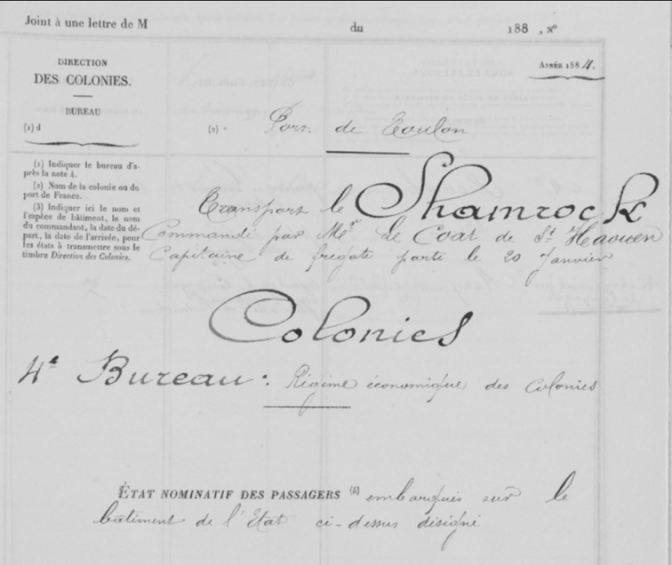 Joint à une lettre de M du 188 , N°
DIRECTION
DES COLONIES.
BUREAU
(1) d
Année 1884.
(2) Port de Toulon
(1) Indiquer le bureau d'a-
près la note 4.
(2) Nom de la colonie ou du
port de France.
(3) Indiquer ici le nom et
l'espèce de bâtiment, le nom
du commandant, la date du dé-
part, la date de l'arrivée, pour
les états à transmettre sous le
timbre Direction des Colonies.
Transport le Shamrock
Commandé par Mr Le Coat de St Haouen
Capitaine de frégate parti le 20 Janvier
Colonies
4e Bureau : Régime économique des Colonies
ÉTAT NOMINATIF DES PASSAGERS (3) embarqués sur le
bâtiment de l'État ci-dessus désigné